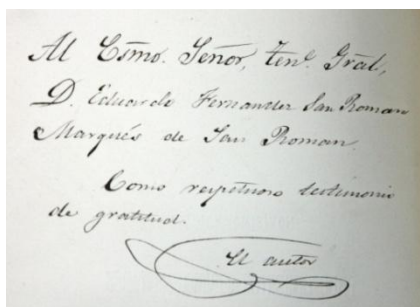 Al Esmo. Señor, Tenᵉ. Gräl,
D. Eduardo Fernandez San Roman
Marqués de San Roman.
Como respetuoso testimonio
de gratitud.
El autor